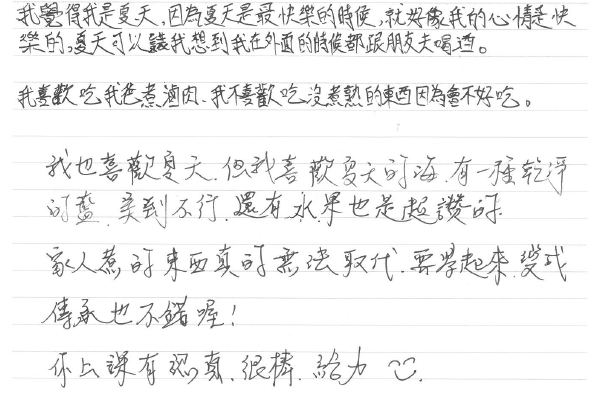 我覺得我是夏天,因為夏天是最快樂的時候,就好像我的心情是快
樂的。夏天可以讓我想到我在外面的時候都跟朋友去喝酒。
我喜歡吃我爸煮滷肉、我不喜歡吃沒煮熟的東西因為會不好吃。
我也喜歡夏天.但我喜歡夏天的海.有一種乾淨
的藍.美到不行.還有水果也是超讚的.
家人煮的東西真的無法取代.要學起來.變成
傳承也不錯喔!
你上課有認真.很棒.給力